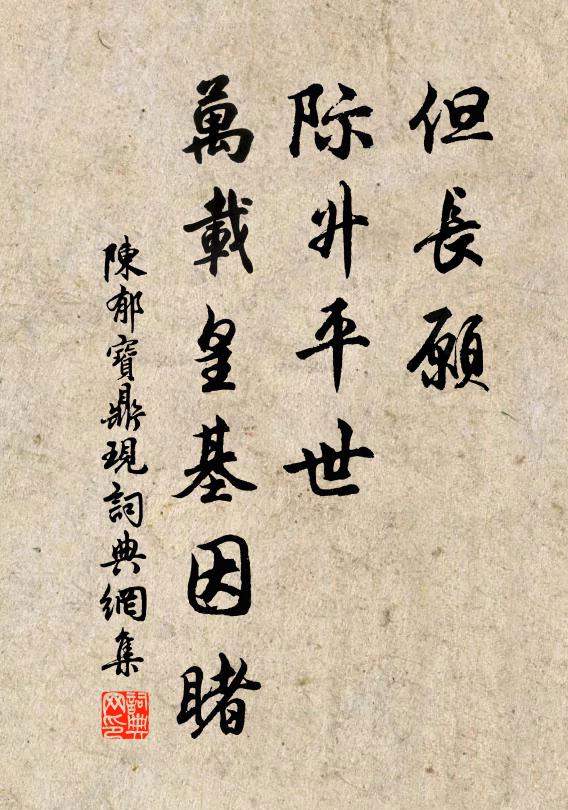 但長願
际升平世
萬載皇基因睹
陳郁寶鼎現詞典網集
詞典网印